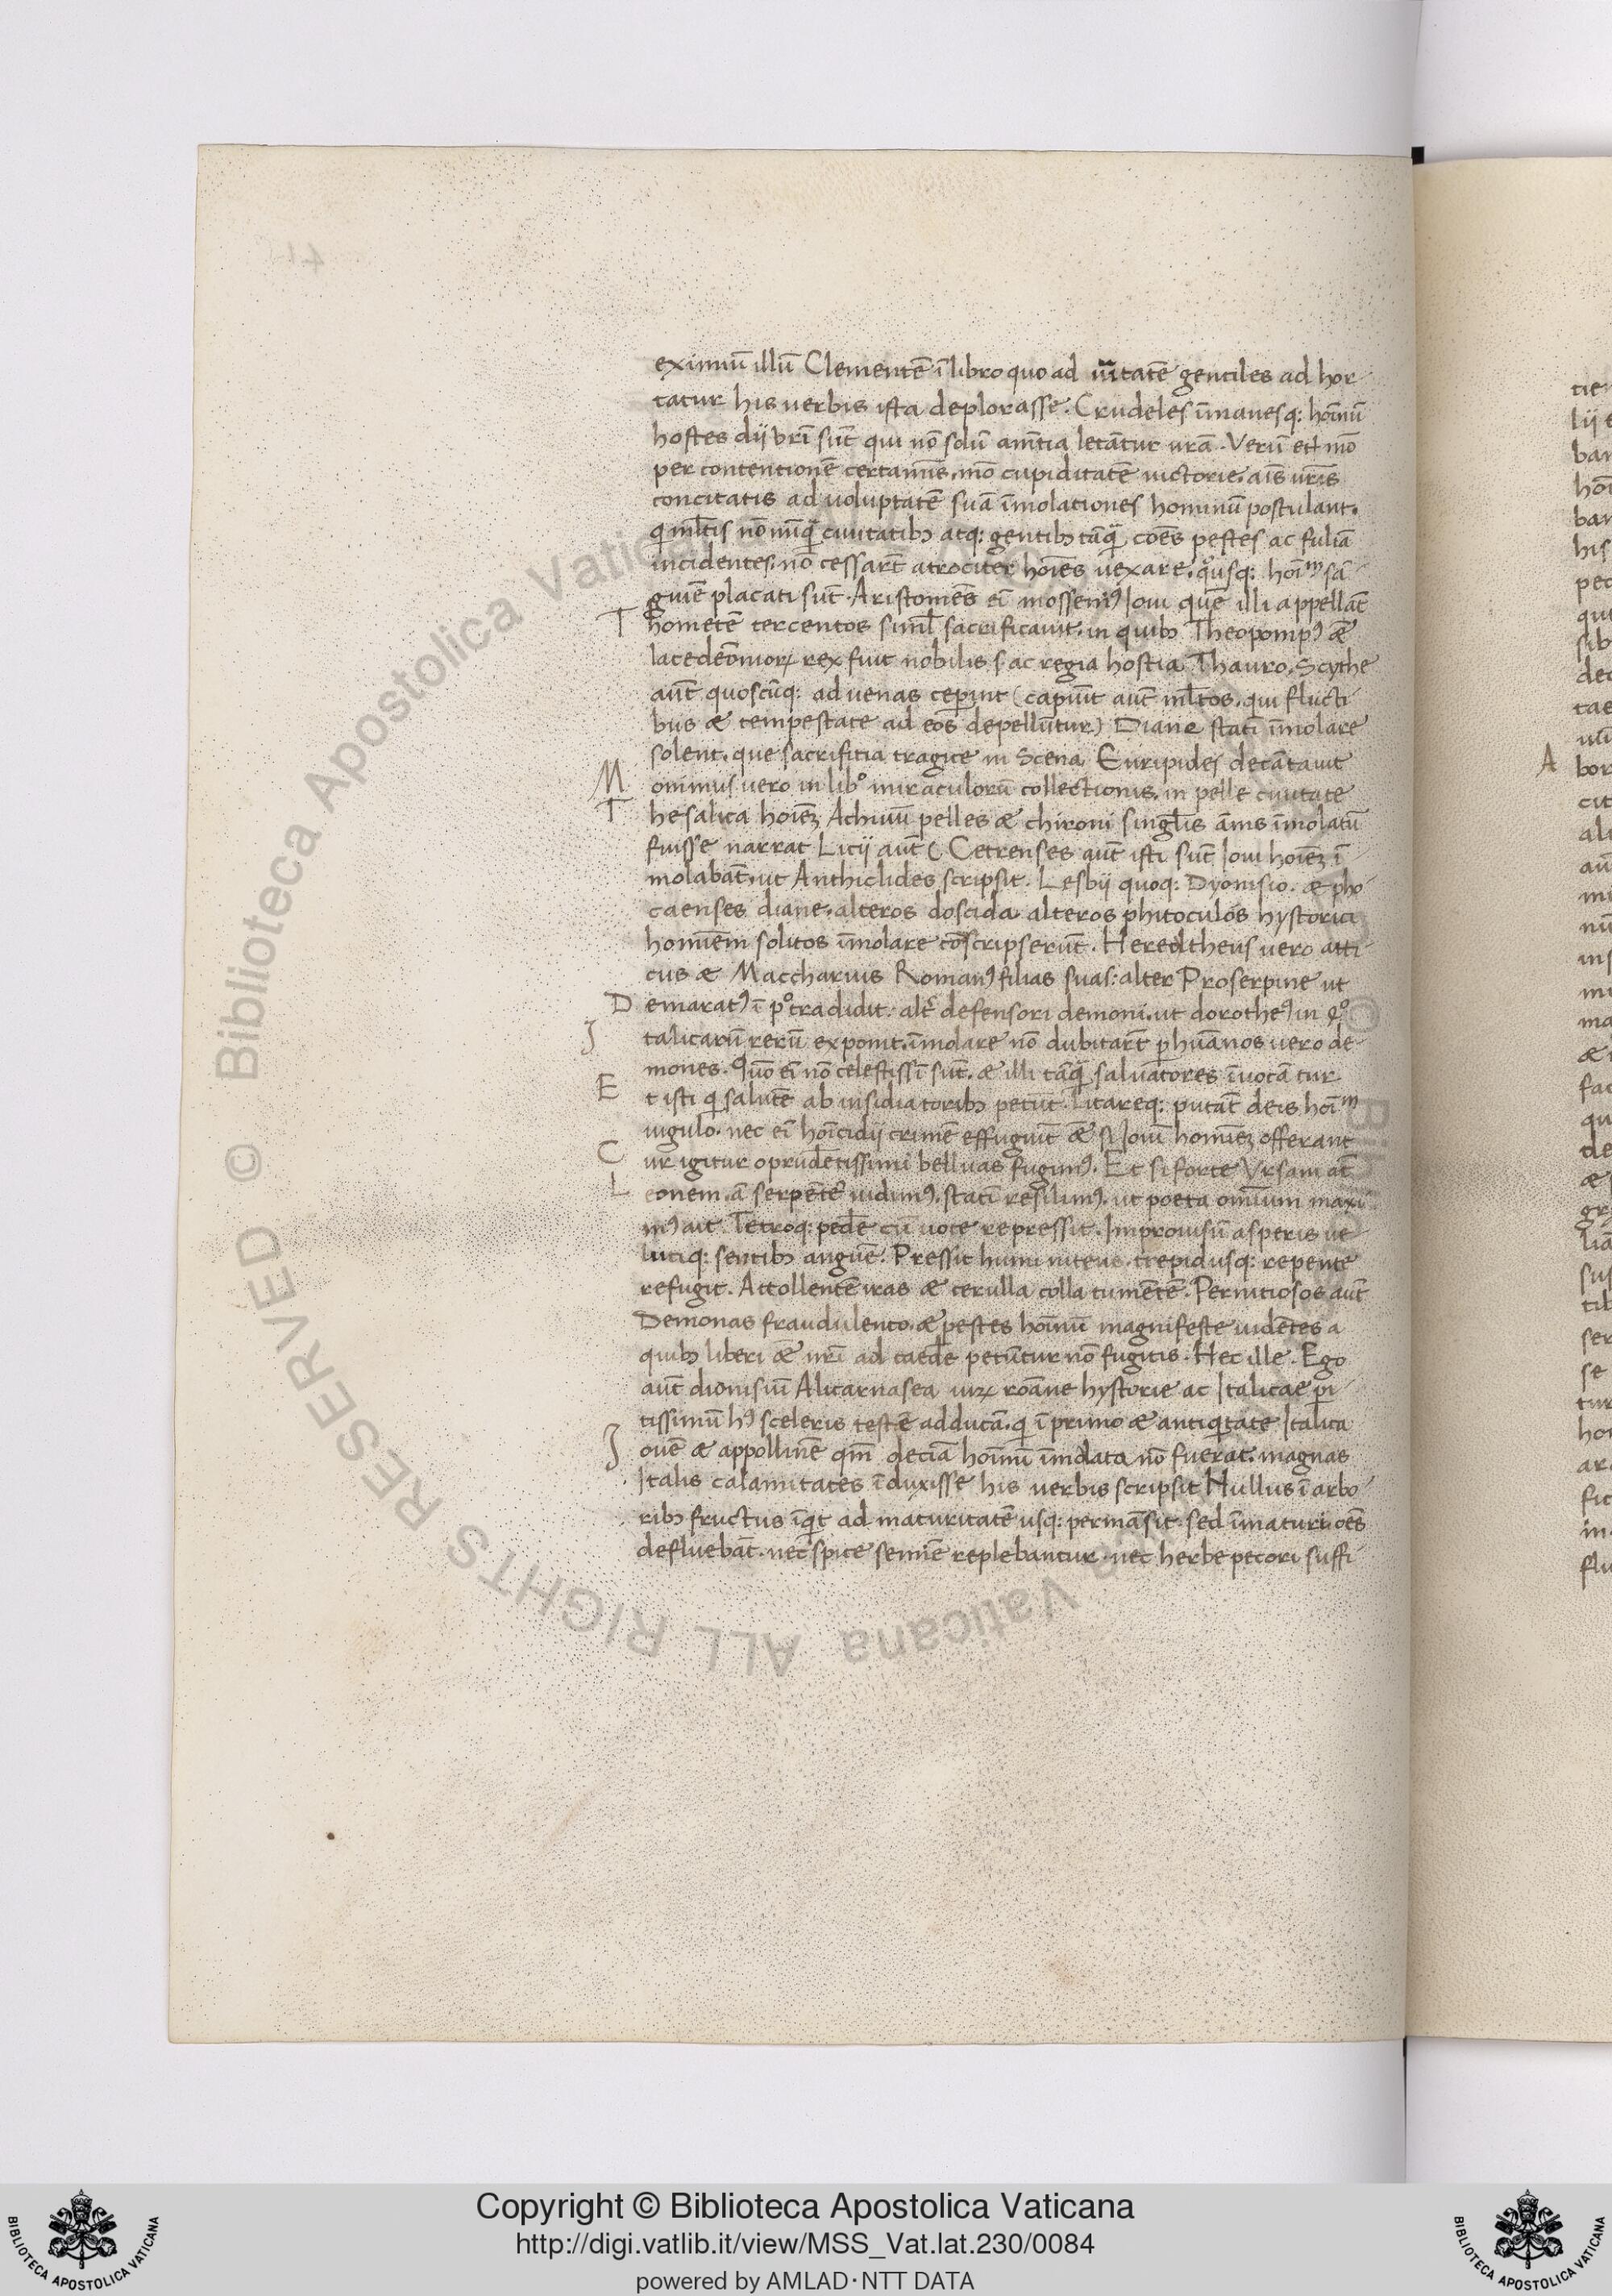 eximiū illū Clementē ī libro quo ad ūītatē gentiles ad hor
tatur his uerbis ista deplorasse. Crudeles īmanesq: hoīnū
hostes dij vrī sūt qui nō solū amētia letātur urā. Verū et mō
per contentionē certaminis, mō cupiditatē uictorie, aīs urīs
concitatis ad uoluptatē suā īmolationes hominū postulant.
q̄ mltis nōnūq̄ ciuitatibꝫ atq: gentibꝫ tāq̄ cōēs pestes ac
incidentes, nō cessarūt atrociter hoīes uexare, q̄usq: hoīm sā
guīe placati sūt. Aristomēs eī mosseniꝰ Ioui quē illi appellāt
T hometē tercentos simul sacrificauit, in quibꝫ Theopompꝰ æ
lacedēmonioꝝ rex fuit nobilis ac regia hostia Thauro, Scythe
aūt quoscūq: aduenas cepint (capiūt aūt mltos, qui flucti
bus æ tempestate ad eos depellūtur) Diane statī īmolare
solent, que sacrifitia tragice in Scena Euripides decātauit
M onimus uero in libᵒ miraculorū collectionis, in pelle ciuitate
T hesalica hoīeꝫ Achiuū pelles æ chironi singlis ānis īmolatū
fuisse narrat Licij aūt (Cetrenses aūt isti sūt Ioui hoīeꝫ ī
molabāt, ut Anthiclides scripsit. Lesbij quoq: Dyonisio. æ pho
caenses diane, alteros doscida, alteros phitoculos hystorici
hominem solitos īmolare cōscripserūt. Herectheus uero atti
cus æ Maccharius Romanꝰ filias suas: alter Proserpine ut
D emaratꝰ ī pᵒ tradidit: altꝰ defensori demoni, ut dorotheꝰ in qᵒ
I talicarū rerū exponit, īmolare nō dubitarūt p humanos uero de
mones. Quō eī nō celestissī sūt, æ illi tāq̄ saluatores īuocātur
E t isti q̄ salutē ab insidiatoribꝫ petūt. Litareq: putāt deis hoīm
iugulo, nec eī hoīcidij crimē effugiūt æ si Ioui homieꝫ offerant
C ur igitur o prudētissimi belluas fugimꝰ. Et si forte Vrsam aūt
L eonem, ā serpētē uidimꝰ, statī resilimꝰ. ut poeta omium maxi
mꝰ ait Tetroq: pedē cū uoce repressit. Improuisū asperis ue
luti q: sentibꝫ anguē. Pressit humi nitens trepidusq: repente
refugit. Attollentē iras æ cerulla colla tumētē. Pernitiosos aūt
Demonas fraudulento, æ pestes hoīnū magnifeste uidētes a
quibꝫ liberi æ urī ad caedē petūtur nō fugitis. Hec ille. Ego
aūt dionisiū Alicarnasea uiꝝ roāne hystorie ac Italicae pi
tissimū hꝰ sceleris testē adducā, q̄ ī primo æ antiqitate Italica
I ouē æ appollinē qm̄ deciā hoīnū īmolata nō fuerat, magnas
Italis calamitates īduxisse his uerbis scripsit Nullus ī arbo
ribꝫ fructus īqit ad maturitatē usq: permāsit. sed īmaturi oēs
defluebāt. nec spice semīe replebantur. nec herbe pecori suffi
Copyright © Biblioteca Apostolica Vaticana
http://digi.vatlib.it/view/MSS_Vat.lat.230/0084
powered by AMLAD·NTT DATA